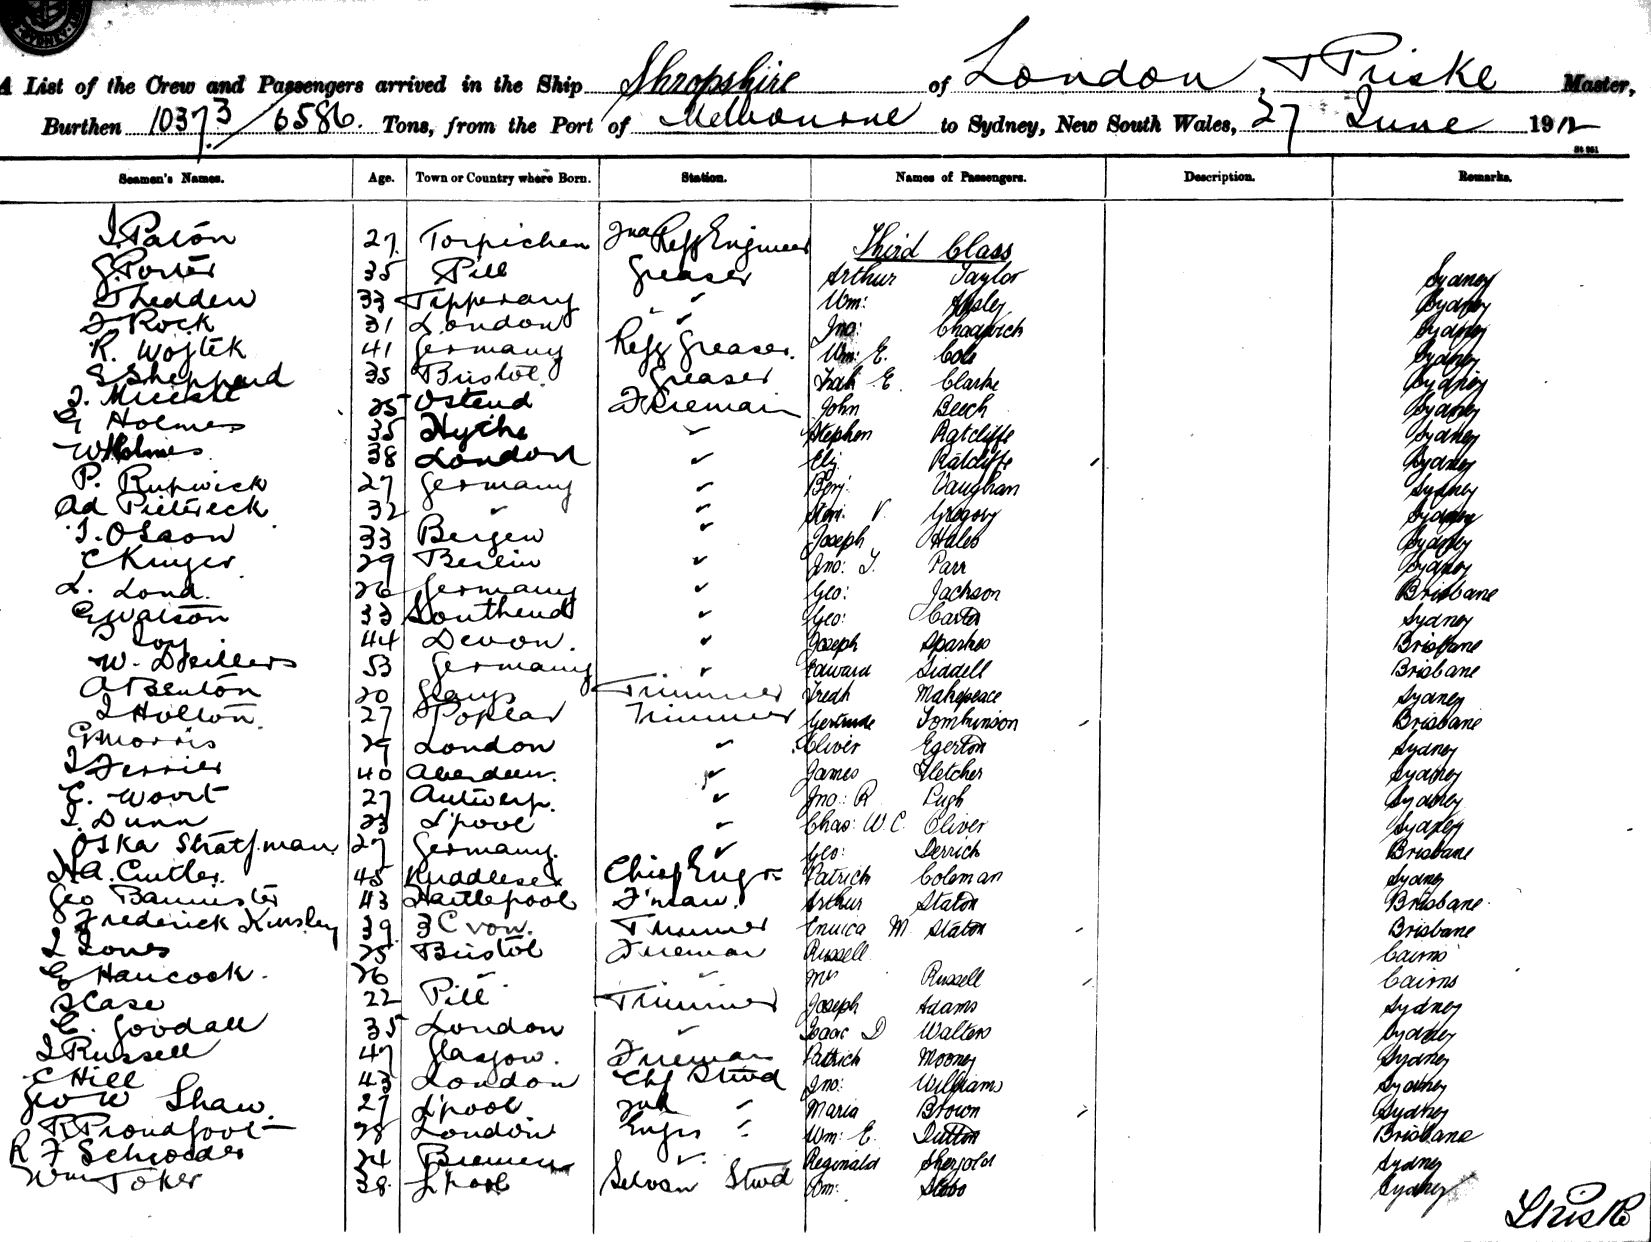 SYDNEY
A List of the Crew and Passengers arrived in the Ship Shropshire of London, Priske Master,
Burthen 10373/6586 Tons, from the Port of Melbourne to Sydney, New South Wales, 27 June 1912
Seamen's Names. Age. Town or Country where Born. Station. Names of Passengers. Description. Remarks.
J. Paton 27 Torpichen 2nd Refg Engineer Third Class
G. Porter 35 Pill Greaser Arthur Taylor Sydney
Shedden 33 Tipperary " Wm: Apsley Sydney
J Rock 31 London " Jno: Chadwick Sydney
R. Wojtek 41 Germany Refg Greaser. Wm: E. Cole Sydney
S Sheppard 35 Bristol. Greaser Fredk E. Clarke Sydney
J. 25 Ostend Fireman John Beech Sydney
G Holmes 35 Hythe " Stephen Ratcliffe Sydney
W Holmes 38 London " Eliz. Ratcliffe Sydney
P. Rupwick 27 Germany " Benj: Vaughan Sydney
Ad Pietreck 32 " V. Gregory Sydney
J. Olsson 33 Bergen " Joseph Hales Sydney
C Kruger 29 Berlin " Jno: T. Parr Sydney
L. Lond. 26 Germany " Geo: Jackson Brisbane
G Watson 33 Southend " Geo: Carter Sydney
44 Devon. " Joseph Sparkes Brisbane
W. 53 Germany " Edward Siddell Brisbane
A Benton 20 Grays Trimmer Fredk Makepeace Sydney
J Holton. 27 Poplar Trimmer Gertrude Tomkinson Brisbane
G Morris 29 London " Oliver Egerton Sydney
J Ferrier 40 Aberdeen. " James Fletcher Sydney
C. Woort 27 Antwerp. " Jno: R Pugh Sydney
J. Dunn 23 L'pool " Chas: W.C. Oliver Sydney
Oska Stratfman 27 Germany. " Geo: Derrick Brisbane
H.A. Cutler. 45 Middlesex Chief Engr. Patrick Coleman Sydney
Geo Bannister 43 Hartlepool F'man. Arthur Staton Brisbane
Frederick Kinsley 39 Trimmer M Staton Brisbane
J Jones 25 Bristol Fireman Russell Cairns
G Hancock. 26 " " Mrs Russell Cairns
S Case 22 Pill Trimmer Joseph Adams Sydney
C. Goodall 35 London " Isaac D Walters Sydney
J Russell 47 Glasgow. Fireman Patrick Mooney Sydney
C Hill 43 London Chf Stwd Jno: Williams Sydney
Geo W Shaw. 27 L'pool 2nd " Maria Brown Sydney
R Proudfoot 28 London Engrs " Wm: E. Dutton Brisbane
R F Schroeder 24 Bremen " Reginald Shergold Sydney
Wm Toker 38 L'pool Saloon Stwd Wm: Stobo Sydney
Priske